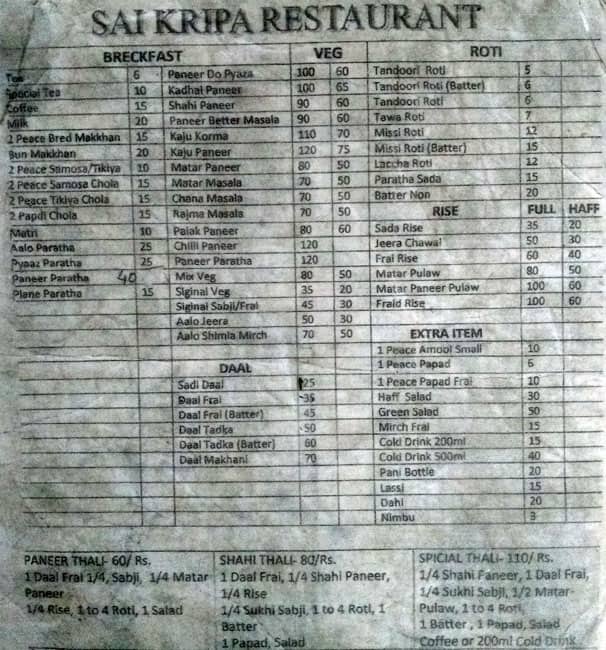 SAI KRIPA RESTAURANT
BRECKFAST
Tea 6
Special Tea 10
Coffee 15
Milk 20
2 Peace Bred Makkhan 15
Bun Makkhan 20
2 Peace Samosa/Tikiya 10
2 Peace Samosa Chola 15
2 Peace Tikiya Chola 15
2 Papdi Chola 15
Matri 10
Aalo Paratha 25
Pyaaz Paratha 25
Paneer Paratha 40
Plane Paratha 15
VEG
Paneer Do Pyaza 100 60
Kadhai Paneer 100 65
Shahi Paneer 90 60
Paneer Better Masala 90 60
Kaju Korma 110 70
Kaju Paneer 120 75
Matar Paneer 80 50
Matar Masala 70 50
Chana Masala 70 50
Rajma Masala 70 50
Palak Paneer 80 60
Chilli Paneer 120
Paneer Paratha 120
Mix Veg 80 50
Siginal Veg 35 20
Siginal Sabji/Frai 45 30
Aalo Jeera 50 30
Aalo Shimla Mirch 70 50
DAAL
Sadi Daal 25
Daal Frai 35
Daal Frai (Batter) 45
Daal Tadka 50
Daal Tadka (Batter) 60
Daal Makhani 70
ROTI
Tandoori Roti 5
Tandoori Roti (Batter) 6
Tandoori Roti 6
Tawa Roti 7
Missi Roti 12
Missi Roti (Batter) 15
Laccha Roti 12
Paratha Sada 15
Batter Non 20
RISE FULL HAFF
Sada Rise 35 20
Jeera Chawal 50 30
Frai Rise 60 40
Matar Pulaw 80 50
Matar Paneer Pulaw 100 60
Fraid Rise 100 60
EXTRA ITEM
1 Peace Amool Small 10
1 Peace Papad 6
1 Peace Papad Frai 10
Haff Salad 30
Green Salad 50
Mirch Frai 15
Cold Drink 200ml 15
Cold Drink 500ml 40
Pani Bottle 20
Lassi 15
Dahi 20
Nimbu 3
PANEER THALI- 60/ Rs.
1 Daal Frai 1/4, Sabji, 1/4 Matar
Paneer
1/4 Rise, 1 to 4 Roti, 1 Salad
SHAHI THALI- 80/Rs.
1 Daal Frai, 1/4 Shahi Paneer,
1/4 Rise
1/4 Sukhi Sabji, 1 to 4 Roti, 1
Batter
1 Papad, Salad
SPICIAL THALI- 110/ Rs.
1/4 Shahi Paneer, 1 Daal Frai,
1/4 Sukhi Sabji, 1/2 Matar-
Pulaw, 1 to 4 Roti,
1 Batter , 1 Papad, Salad
Coffee or 200ml Cold Drink